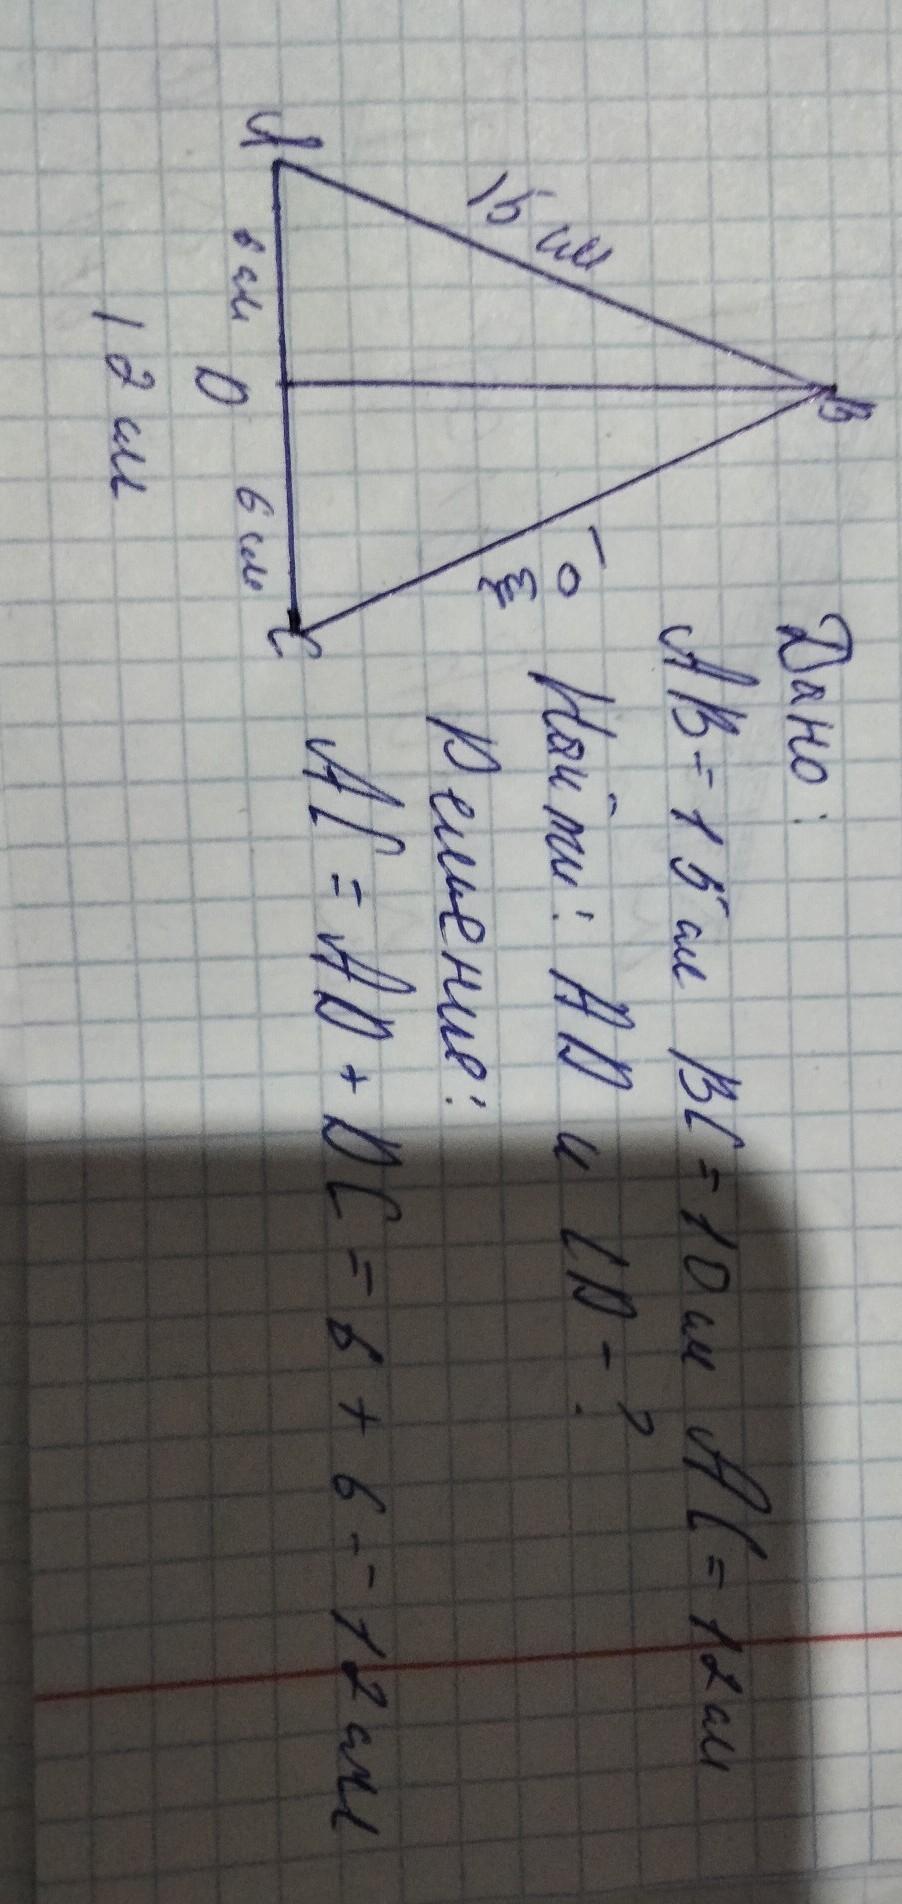 Дано:
AB = 15 см BC = 10 см AC = 12 см
Найти: AD и CD - ?
Решение:
AC = AD + DC = 6 + 6 - 12 см
A
B
C
D
15 см
10 см
6 см
6 см
12 см